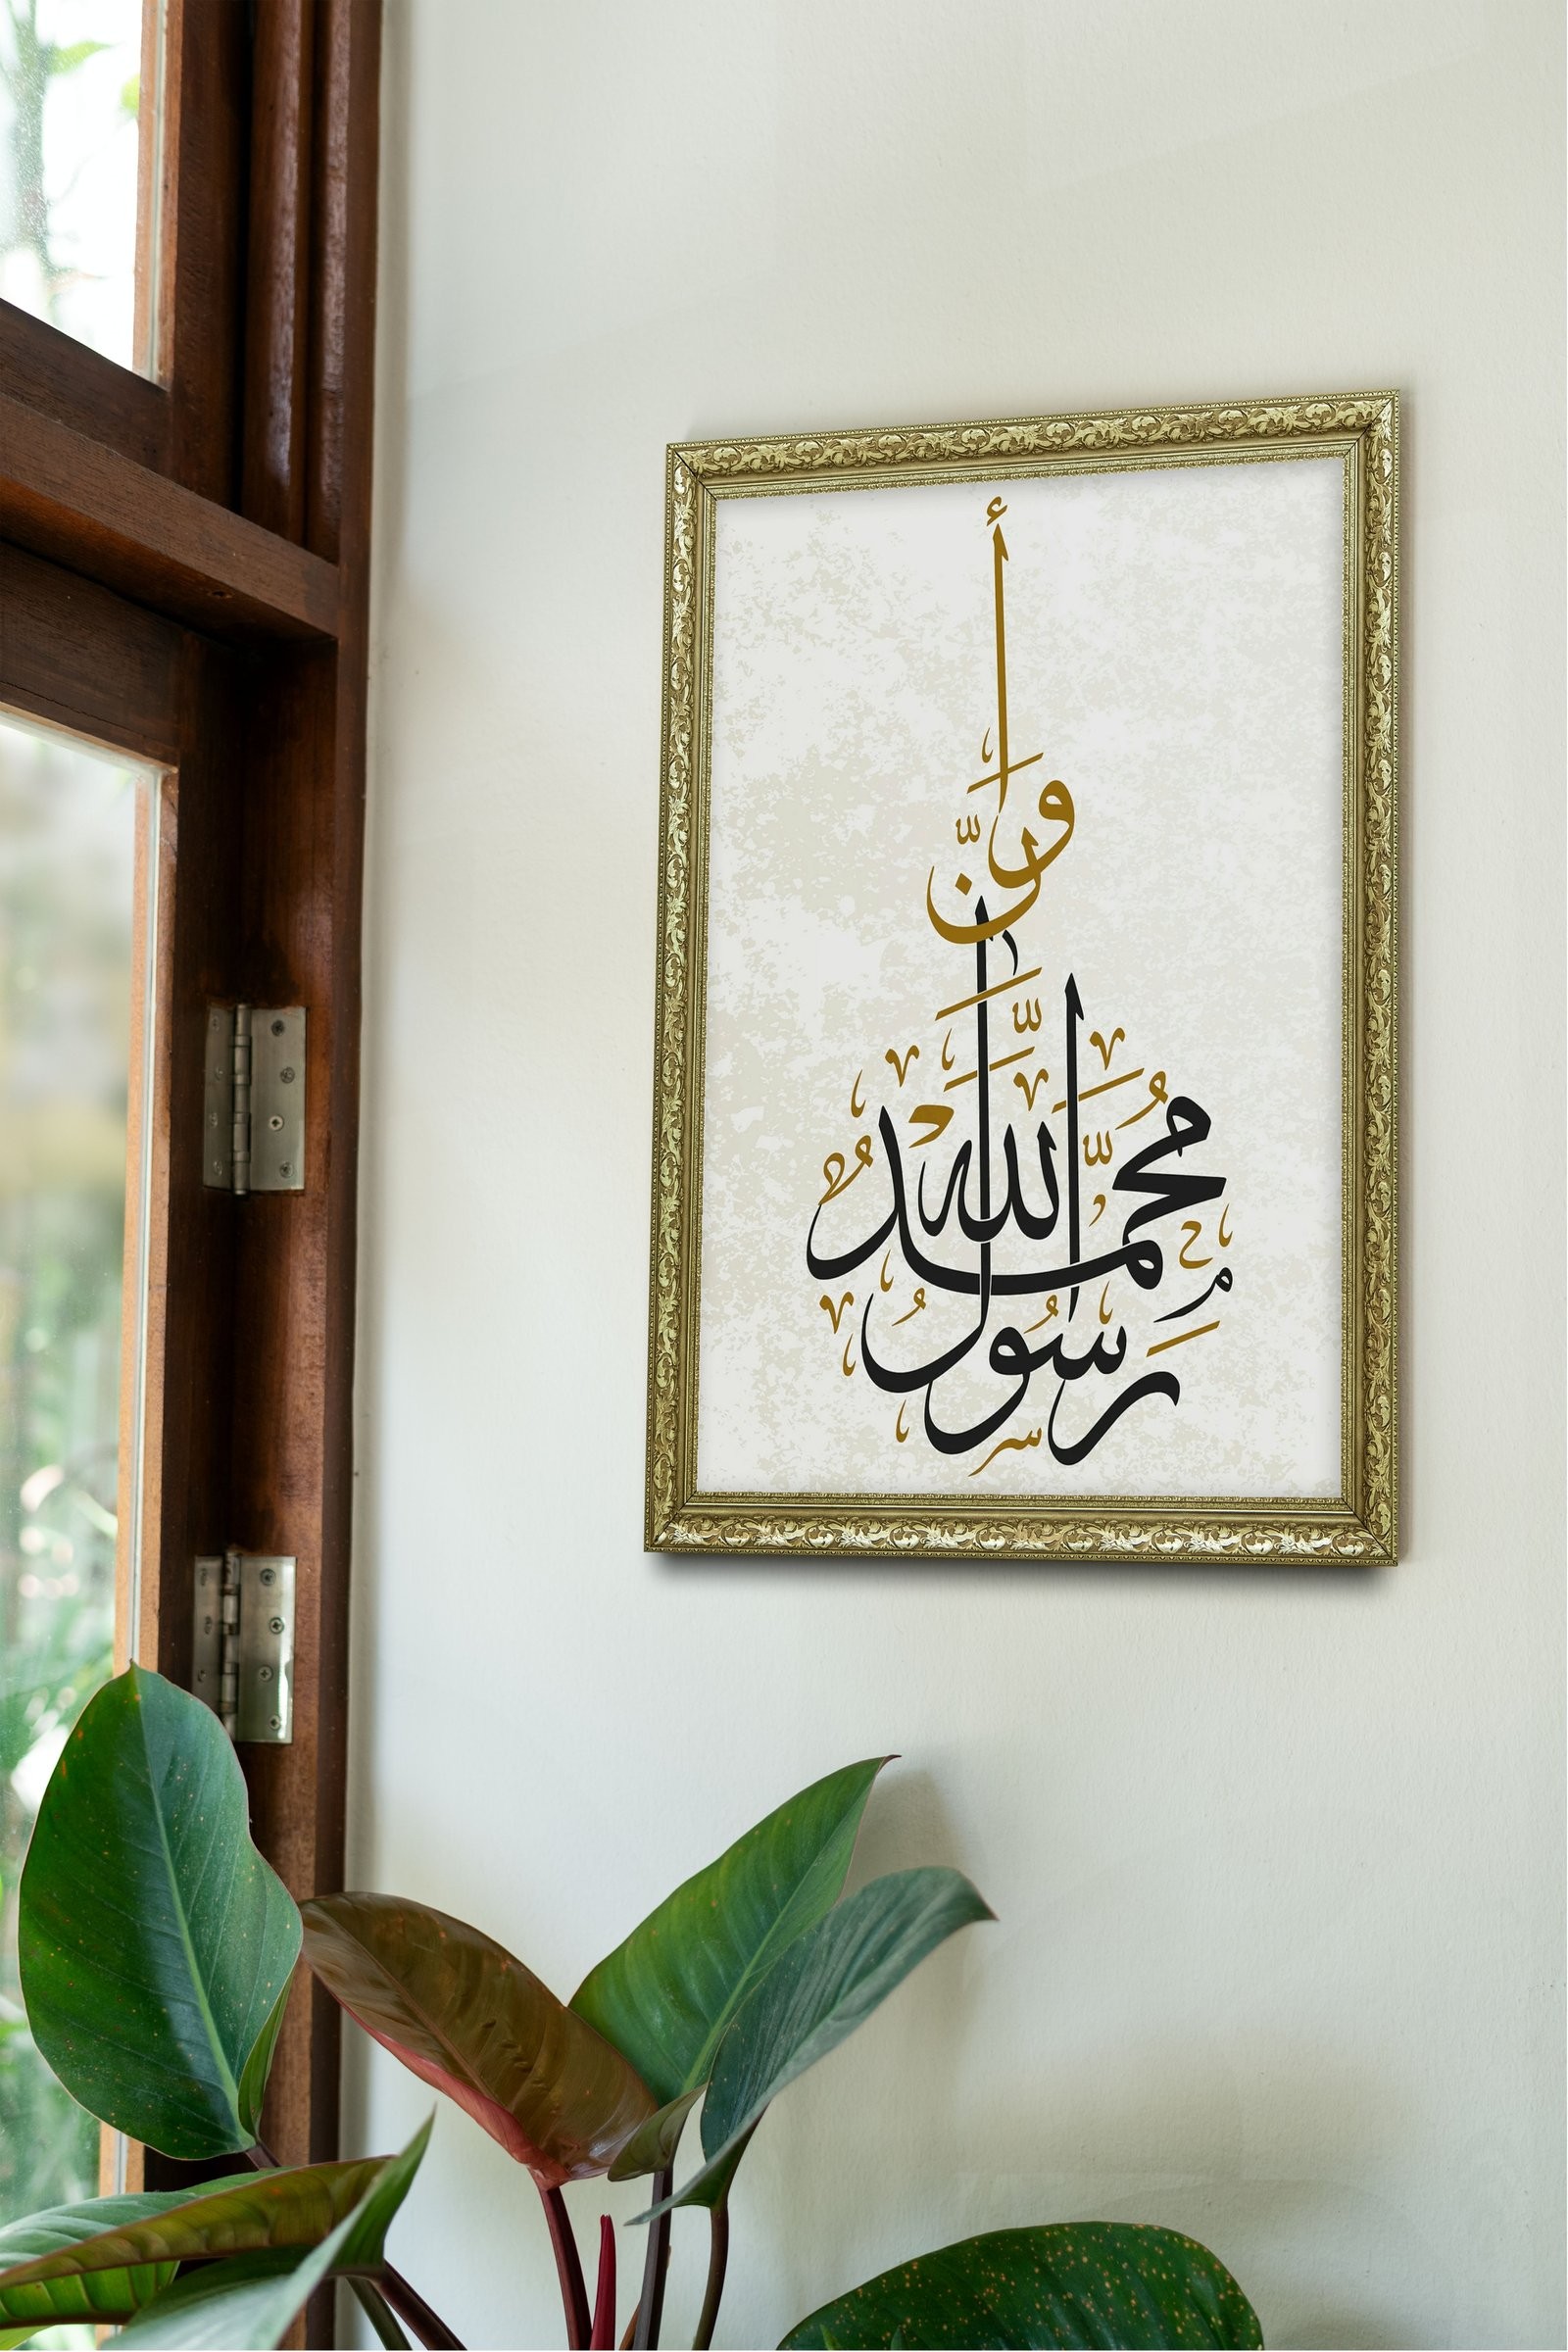 وَأَنَّ
مُحَمَّدًا
رَسُولُ اللَّهِ